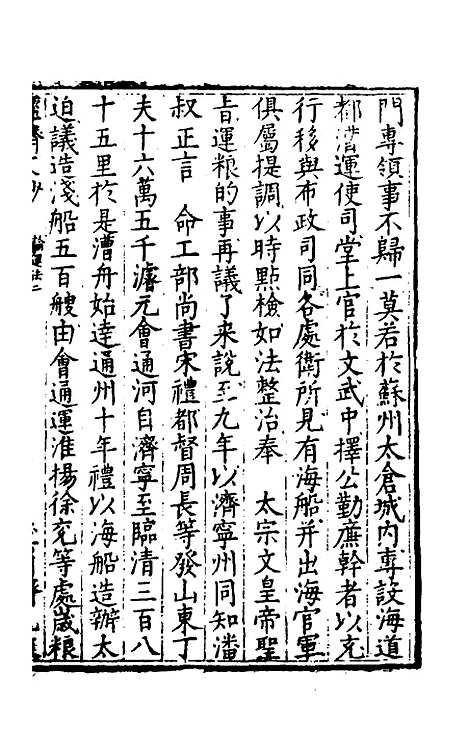 門專領事不歸一莫若於蘇州太倉城内專設海道
都漕運使司堂上官於文武中擇公勤廉幹者以充
行移與布政司同各處衛所見有海船并出海官軍
俱屬提調以時點檢如法整治奉　太宗文皇帝聖
旨運粮的事再議了来說至九年以濟寧州同知潘
叔正言　命工部尚書宋禮都督周長等發山東丁
夫十六萬五千濬元會通河自濟寧至臨清三百八
十五里於是漕舟始達通州十年禮以海船造辦太
迫議造淺船五百艘由會通運淮楊徐兖等處歲粮